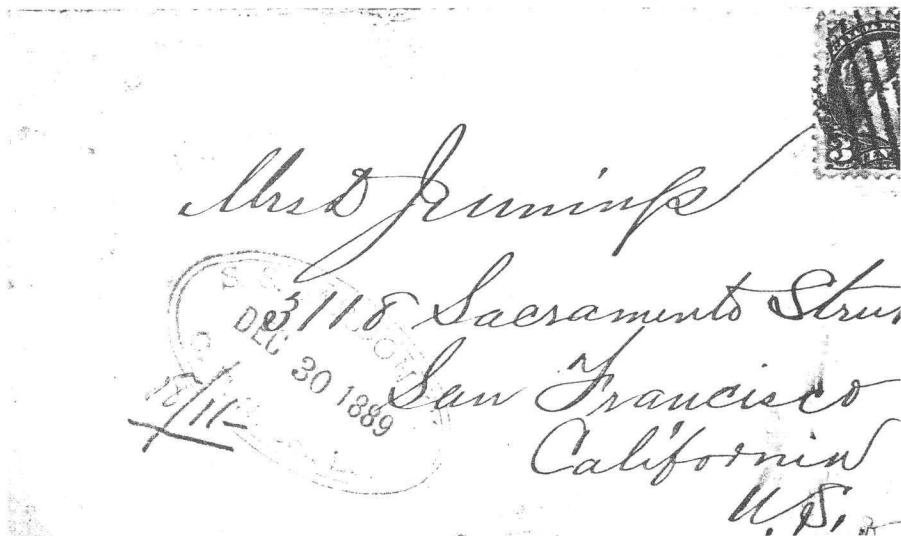 Mrs D Jennings
3118 Sacramento Street
San Francisco
California
U.S.
S.S.
DEC 30 1889
3